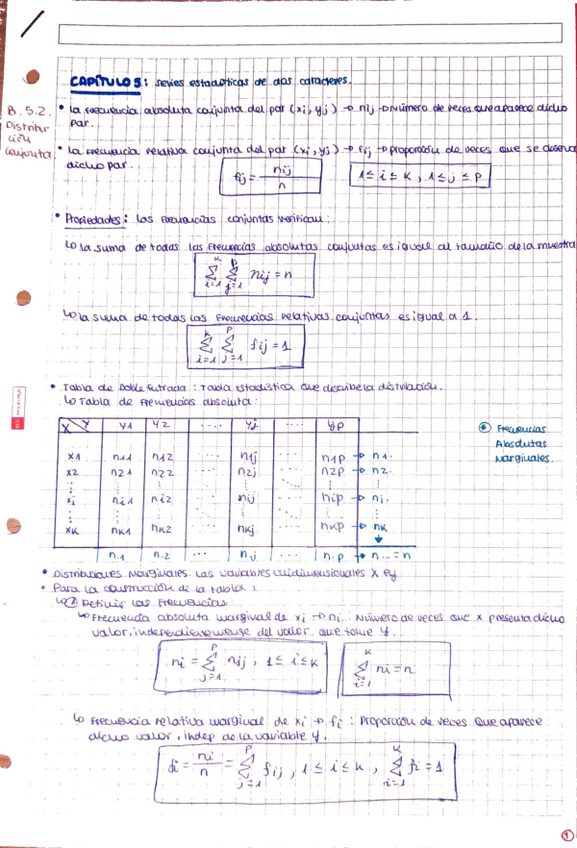 CAPÍTULO 5: series estadísticas de dos caracteres.
B.5.2.
Distribu-
ción
conjunta.
• La frecuencia absoluta conjunta del par (xi, yj) → nij → Número de veces que aparece dicho
par.
• La frecuencia relativa conjunta del par (xi, yj) → fij → proporción de veces que se observa
dicho par.
fij = nij / n
1 ≤ i ≤ K, 1 ≤ j ≤ P
• Propiedades: Las Frecuencias conjuntas verifican:
↳ La suma de todas las frecuencias absolutas conjuntas es iguale al tamaño de la muestra
K∑i=1 P∑j=1 nij = n
↳ La suma de todas las Frecuencias relativas conjuntas es igual a 1.
K∑i=1 P∑j=1 fij = 1
• Tabla de Doble Entrada: Tabla estadística que describe la distribución.
↳ Tabla de Frecuencias absoluta:
X Y y1 y2 .... yj .... yp
x1 n11 n12 .... n1j .... n1p → n1.
x2 n21 n22 .... n2j .... n2p → n2.
⋮ ⋮ ⋮ ⋮ ⋮
xi ni1 ni2 .... nij .... nip → ni.
⋮ ⋮ ⋮ ⋮ ⋮
xK nK1 nK2 .... nKj .... nKp → nK
n.1 n.2 ... n.j n.p → n... = n
Frecuencias
Absolutas
Marginales.
• Distribuciones Marginales: Las variables unidimensionales X e y
• Para la construcción de la tabla:
↳ 1 Definir las Frecuencias
↳ Frecuencia absoluta marginal de xi → ni. Número de veces que x presenta dicho
valor, independientemente del valor que tome y.
ni = P∑j=1 nij, 1 ≤ i ≤ K
K∑i=1 ni = n
↳ Frecuencia relativa marginal de xi → fi: Proporción de veces que aparece
dicho valor, indep de la variable y.
fi = ni / n = P∑j=1 fij, 1 ≤ i ≤ K, K∑i=1 fi = 1
1